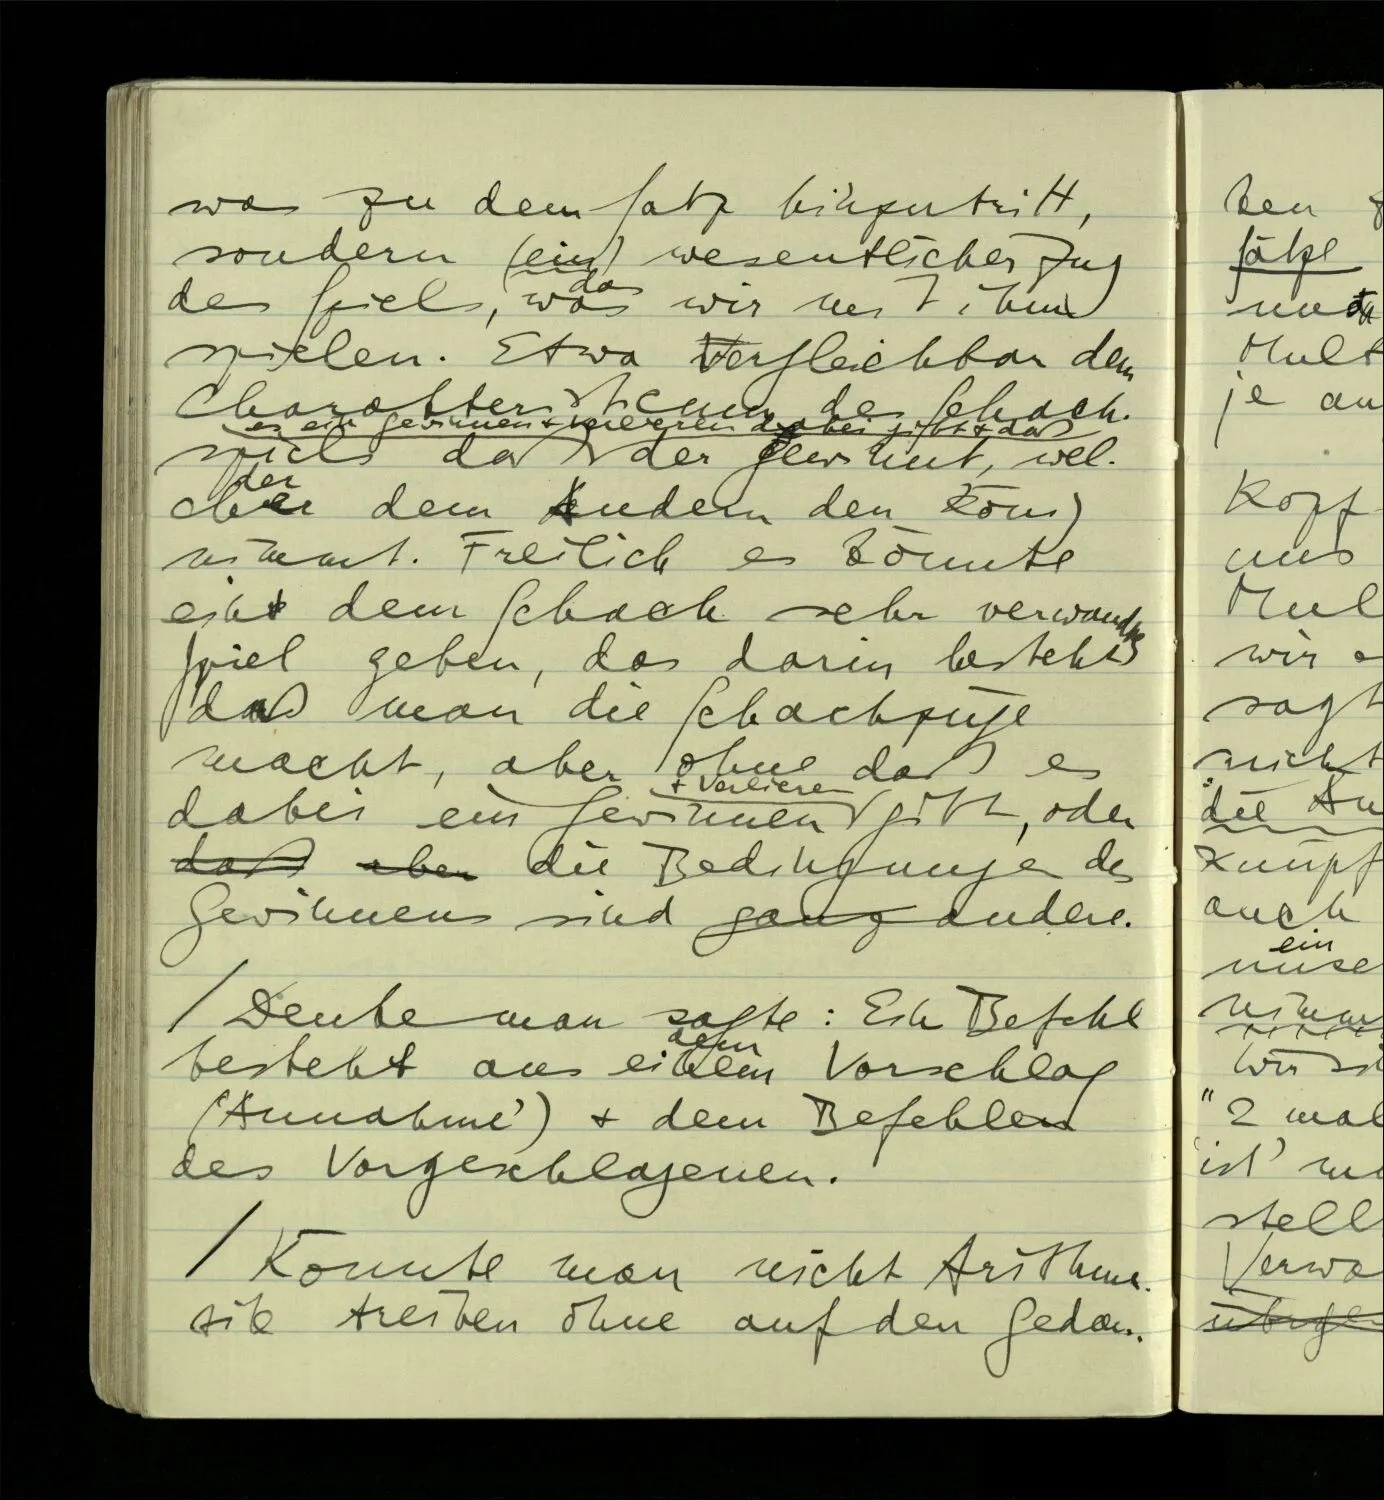 was zu dem Satz hinzutritt,
sondern (ein) wesentlicher Zug
das
des Spiels, was wir mit ihm
spielen. Etwa Vergleichbar dem
Charakteristicum des Schach-
es ein Gewinnen + Verlieren dabei gibt + daß
spiels daß der gewinnt, wel-
der
cher dem Andern den König
nimmt. Freilich es könnte
ein dem Schach sehr verwandtes
Spiel geben, das darin besteht
daß man die Schachzüge
macht, aber ohne daß es
+ Verlieren
dabei ein Gewinnen gibt, oder
daß aber die Bedingungen des
Gewinnens sind ganz andere.
/ Denke man sagte: Ein Befehl
dem
besteht aus einem Vorschlag
('Annahme') + dem Befehlen
des Vorgeschlagenen.
/ Könnte man nicht Arithme-
tik treiben ohne auf den Gedan-
ken
Sätze
und
Mult
je au
Kopf
uns
Mul
wir
sagt
nicht
die An
knüpf
auch
ein
unse
nimm
Wir
"2 mal
'ist'
stell
Verwa